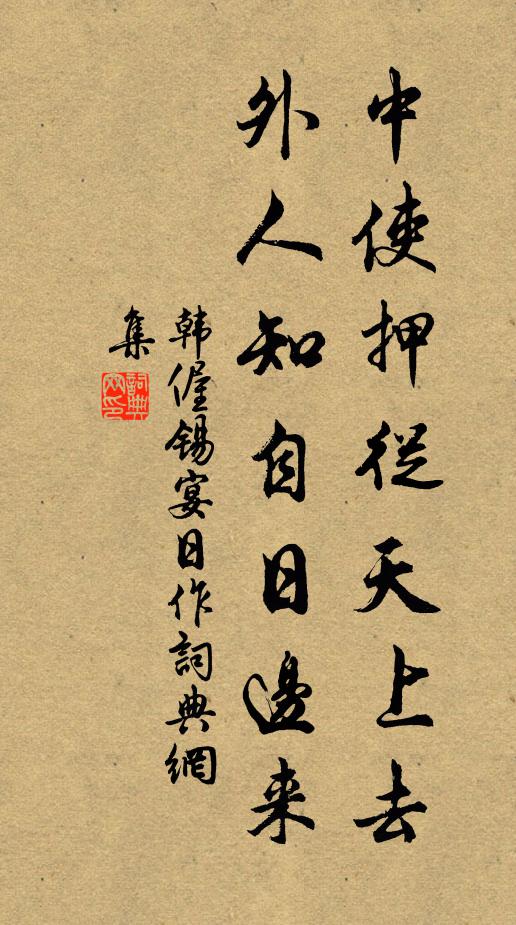 中使押從天上去
外人知自日邊来
韩偓錫宴日作詞典網
集
詞典网印